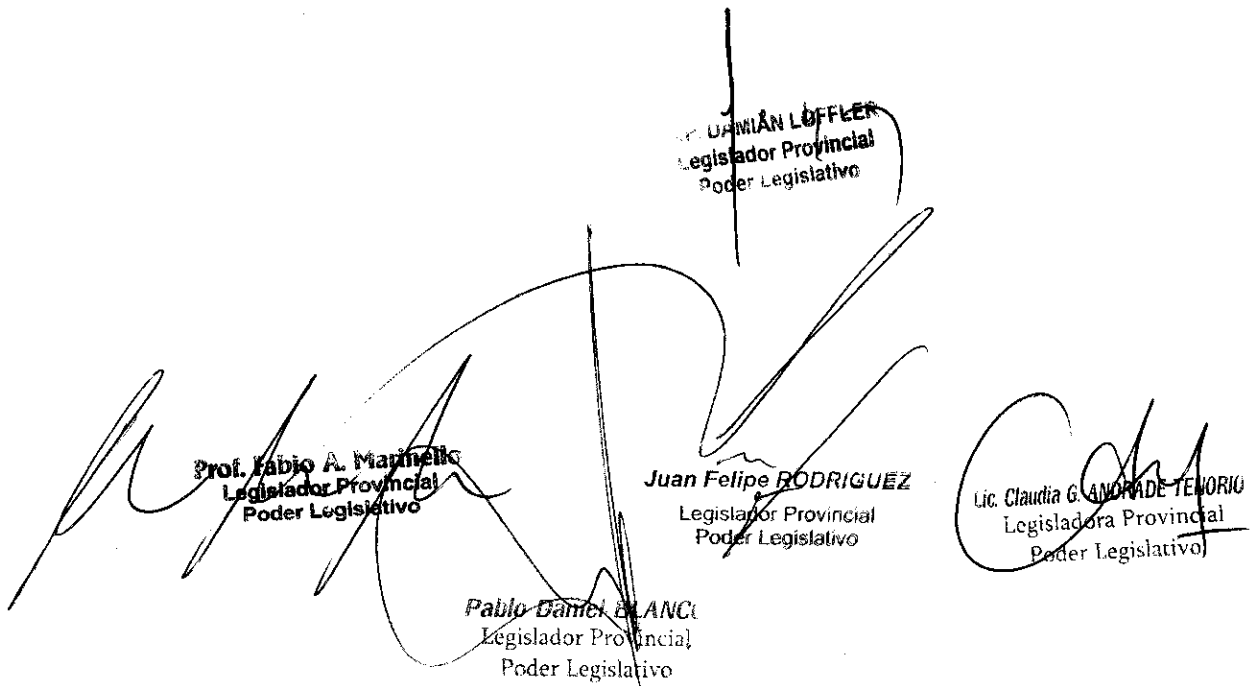 DAMIÁN LÖFFLER
Legislador Provincial
Poder Legislativo
Prof. Fabio A. Marinello
Legislador Provincial
Poder Legislativo
Juan Felipe RODRIGUEZ
Legislador Provincial
Poder Legislativo
Lic. Claudia G. ANDRADE TENORIO
Legisladora Provincial
Poder Legislativo
Pablo Daniel BLANCO
Legislador Provincial
Poder Legislativo